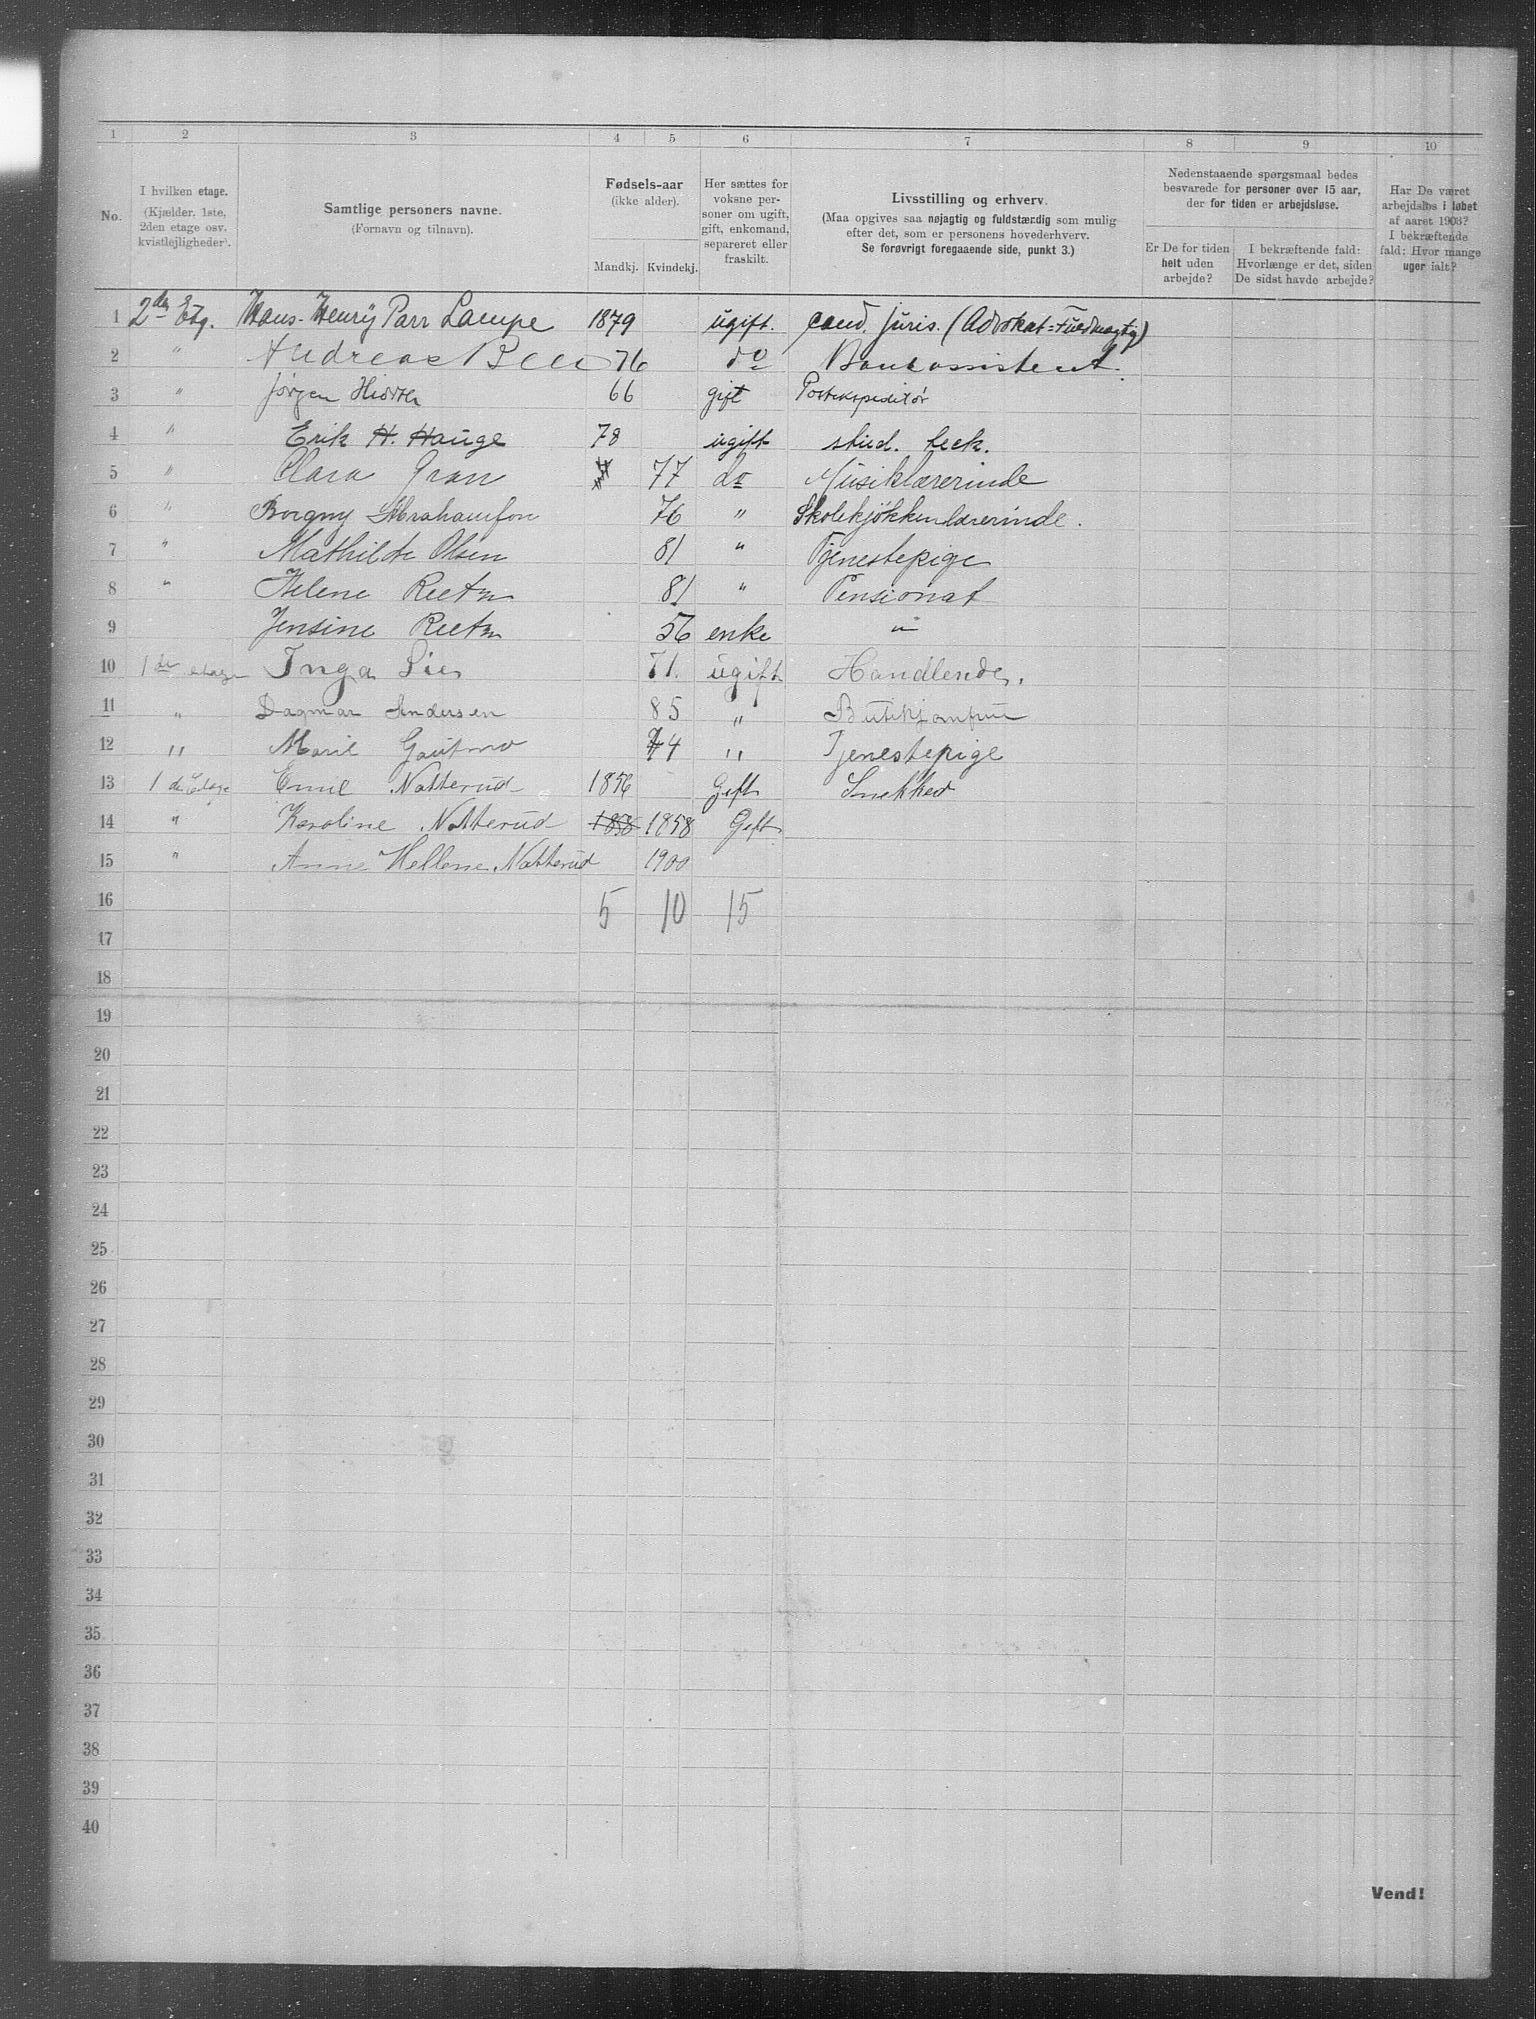 1 2 3 4 5 6 7 8 9 10
No.
I hvilken etage.
(Kjælder, 1ste,
2den etage osv.
kvistlejligheder).
Samtlige personers navne.
(Fornavn og tilnavn).
Fødsels-aar
(ikke alder).
Mandkj. Kvindekj.
Her sættes for
voksne per-
soner om ugift,
gift, enkomand,
separeret eller
fraskilt.
Livsstilling og erhverv.
(Maa opgives saa nøjagtig og fuldstændig som mulig
efter det, som er personens hovederhverv.
Se forøvrigt foregaaende side, punkt 3.)
Nedenstaaende spørgsmaal bedes
besvarede for personer over 15 aar,
der for tiden er arbejdsløse.
Er De for tiden
helt uden
arbejde?
I bekræftende fald:
Hvorlænge er det, siden
De sidst havde arbejde?
Har De været
arbejdsløs i løbet
af aaret 1903?
I bekræftende
fald: Hvor mange
uger ialt?
1 2den Etg. Hans Henry Parr Lampe 1879 ugift. cand. juris. (Advokat=Fuldmægtig)
2 " Andreas 76 do Bankassistent.
3 " Jørgen 66 gift Postekspeditør
4 " Erik H. Hauge 78 ugift stud. teck.
5 " Clara Gran 77 do Musiklærerinde
6 " Borgny Abrahamson 76 " Skolekjøkkenlærerinde.
7 " Mathilde Olsen 81 " Tjenestepige
8 " Helene 81 " Pensionat
9 Jensine 56 enke "
10 1de etage Inga Lie 71. ugift Handlende.
11 " Dagmar Andersen 85 " Butikjomfrue
12 " Marie 74 " Tjenestepige
13 1de Etage Emil Natterud 1856 Gift Snekker
14 " Karoline Natterud 1858 1858 Gift
15 " Anne Hellene Natterud 1900
16 5 10 15
17
18
19
20
21
22
23
24
25
26
27
28
29
30
31
32
33
34
35
36
37
38
39
40
Vend!